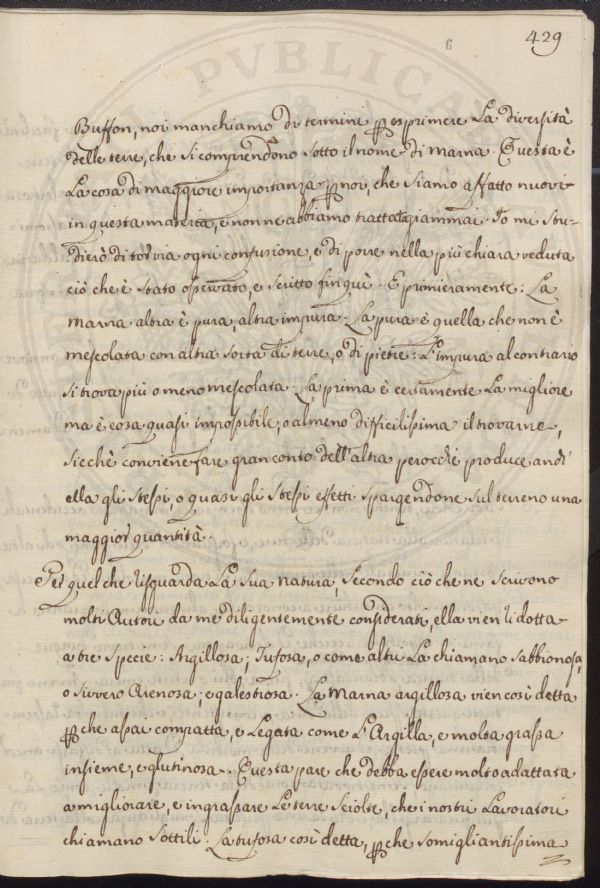 429
6
Buffon, noi manchiamo di termini per esprimere La diversità
delle terre, che si comprendono sotto il nome di marna. Questa è
La cosa di maggiore importanza per noi, che siamo affatto nuovi
in questa materia, e non ne abbiamo trattato giammai. Io mi stu-
dierò di tor via ogni confusione, e di porre nella più chiara veduta
ciò che è stato osservato, e scritto finquì. E primieramente: La
marna altra è pura, altra impura. La pura è quella che non è
mescolata con altra sorta di terre, o di pietre: L'impura al contrario
si trova più o meno mescolata. La prima è certamente La migliore
ma è cosa quasi impossibile, o almeno difficilissima il trovarne,
sicchè conviene fare gran conto dell'altra perocchè produce anch'
ella gli stessi, o quasi gli stessi effetti spargendone sul terreno una
maggior quantità.
Per quel che risguarda La sua natura, secondo ciò che ne scrivono
molti Autori da me diligentemente considerati, ella vien ridotta
a tre specie: Argillosa; Tufosa, o come altri La chiamano sabbionosa,
o sivvero Arenosa; e galestrosa. La Marna argillosa vien così detta
perche assai compatta, e Legata come L'Argilla, e molto grassa
insieme, e glutinosa. Questa pare che debba essere molto adattata
a migliorare, e ingrassare Le terre sciolte, che i nostri Lavoratori
chiamano sottili. La tufosa così detta, perche somigliantissima
PVBLICA